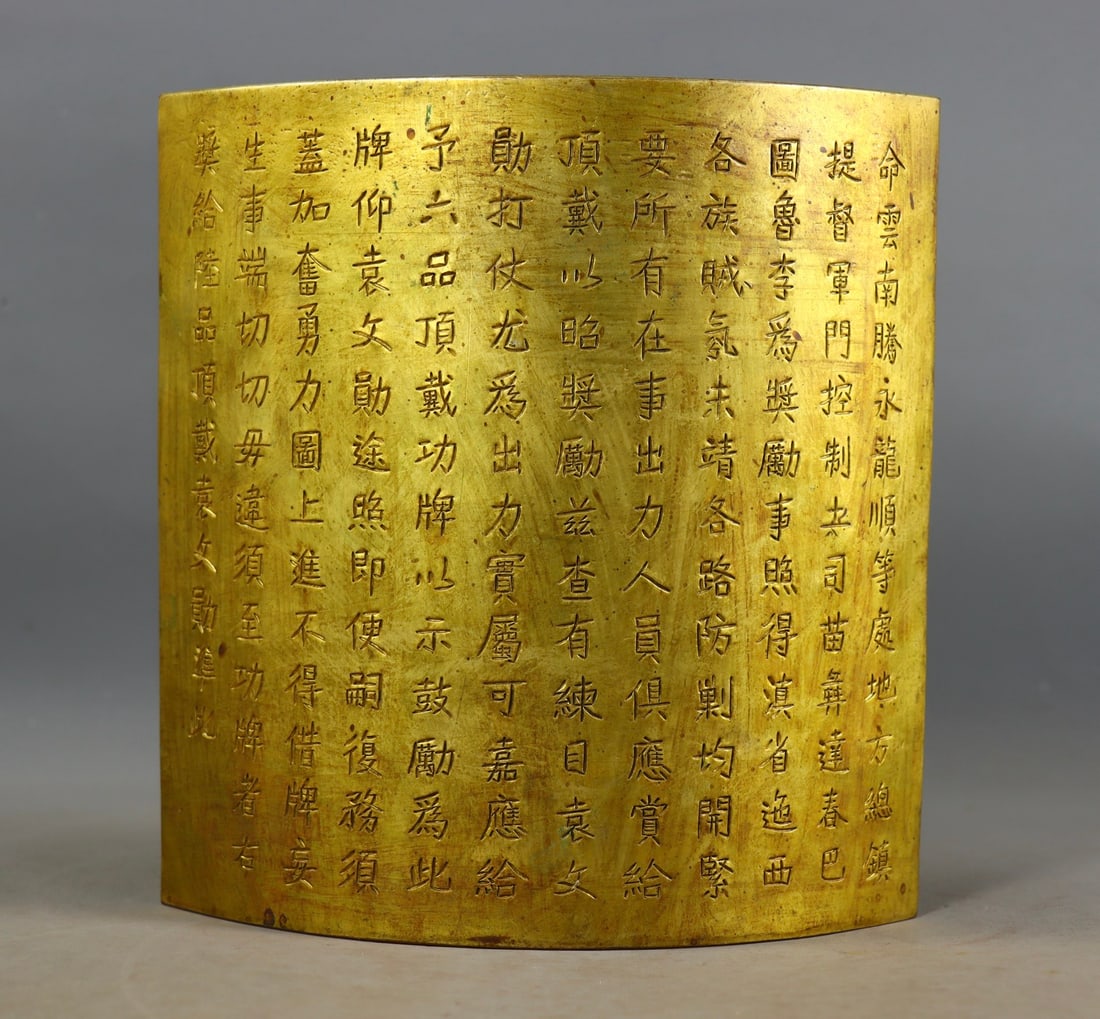 命雲南騰永龍順等處地方總鎮
提督軍門控制土司苗彝達春巴
圖魯李爲獎勵事照得滇省迤西
各族賊氛未靖各路防剿均開緊
要所有在事出力人員俱應賞給
頂戴以昭獎勵茲查有練目袁文
勛打仗尤爲出力實屬可嘉應給
予六品頂戴功牌以示鼓勵爲此
牌仰袁文勛途照即便嗣復務須
蓋加奮勇力圖上進不得借牌妄
生事端切切毋違須至功牌者右
獎給陸品頂戴袁文勛準此